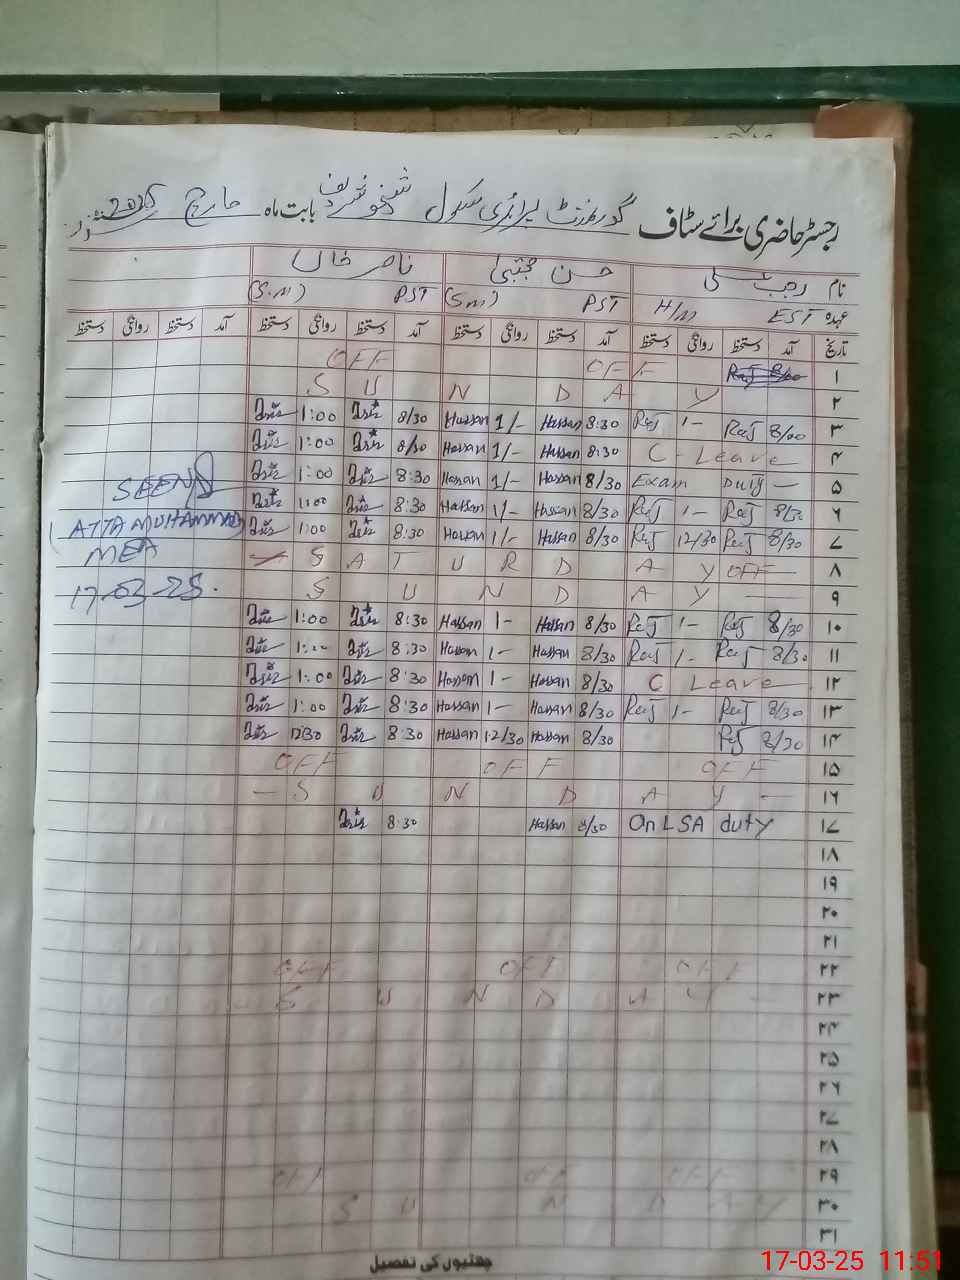 رجسٹر حاضری برائے سٹاف گورنمنٹ پرائمری سکول بابت ماہ مارچ 2025
نام رجب علی حسن مجتبیٰ ناصر خاں
عہدہ EST H/M PST (S.M) PST (S.M)
تاریخ آمد دستخط روانگی دستخط آمد دستخط روانگی دستخط آمد دستخط روانگی دستخط آمد دستخط روانگی دستخط
OFF OFF ۱
S U N D A Y ۲
1:00 8/30 Hassan 1/- Hassan 8:30 Raj 1- Raj 8/00 ۳
1:00 8/30 Hassan 1/- Hassan 8:30 C-Leave ۴
1:00 8:30 Hassan 1/- Hassan 8/30 Exam Duty — ۵
1:00 8:30 Hassan 1/- Hassan 8/30 Raj 1- Raj 8/30 ۶
1:00 8:30 Hassan 1/- Hassan 8/30 Raj 12/30 Raj 8/30 ۷
S A T U R D A Y OFF ۸
S U N D A Y ۹
1:00 8:30 Hassan 1- Hassan 8/30 Raj 1- Raj 8/30 ۱۰
1:00 8:30 Hassan 1- Hassan 8/30 Raj 1- Raj 8/30 ۱۱
1:00 8:30 Hassan 1- Hassan 8/30 C Leave ۱۲
1:00 8:30 Hassan 1- Hassan 8/30 Raj 1- Raj 8/30 ۱۳
12:30 8:30 Hassan 12/30 Hassan 8/30 Raj 8/30 ۱۴
OFF OFF OFF ۱۵
— S U N D A Y — ۱۶
8:30 Hassan 8/30 On LSA duty ۱۷
۱۸
۱۹
۲۰
۲۱
OFF OFF OFF ۲۲
S U N D A Y ۲۳
۲۴
۲۵
۲۶
۲۷
۲۸
OFF OFF OFF ۲۹
S U N D A Y ۳۰
۳۱
چھٹیوں کی تفصیل
SEEN
(ATTA MUHAMMAD)
MEA
17-03-25.
17-03-25 11:51